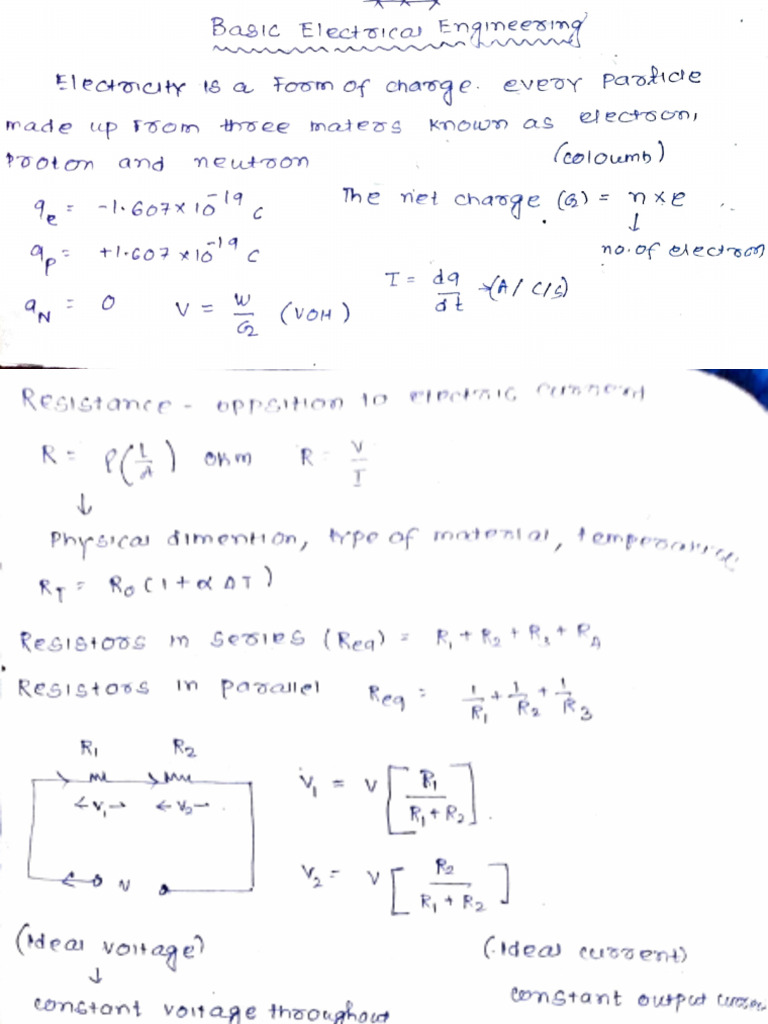 Basic Electrical Engineering
Electricity is a Form of charge. every particle
made up From three maters known as electron,
Proton and neutron (coloumb)
qe = -1.607×10^-19 C The net charge (Q) = n×e
↓
qp = +1.607×10^-19 C no. of electron
I = dq/dt → (A/ C/s)
qN = 0 V = W/Q (VOH)
Resistance - oppsition to electric current
R = ρ(L/A) ohm R = V/I
↓
Physical dimention, type of material, temperature
RT = R0 (1 + α ΔT)
Resistors in series (Req) = R1 + R2 + R3 + R4
Resistors in parallel Req = 1/R1 + 1/R2 + 1/R3
R1 R2
V1 = V [R1/(R1 + R2)].
←V1→ ←V2→
V2 = V [R2/(R1 + R2)]
V
(Ideal voltage) (Ideal current)
↓
constant voltage throughout constant output